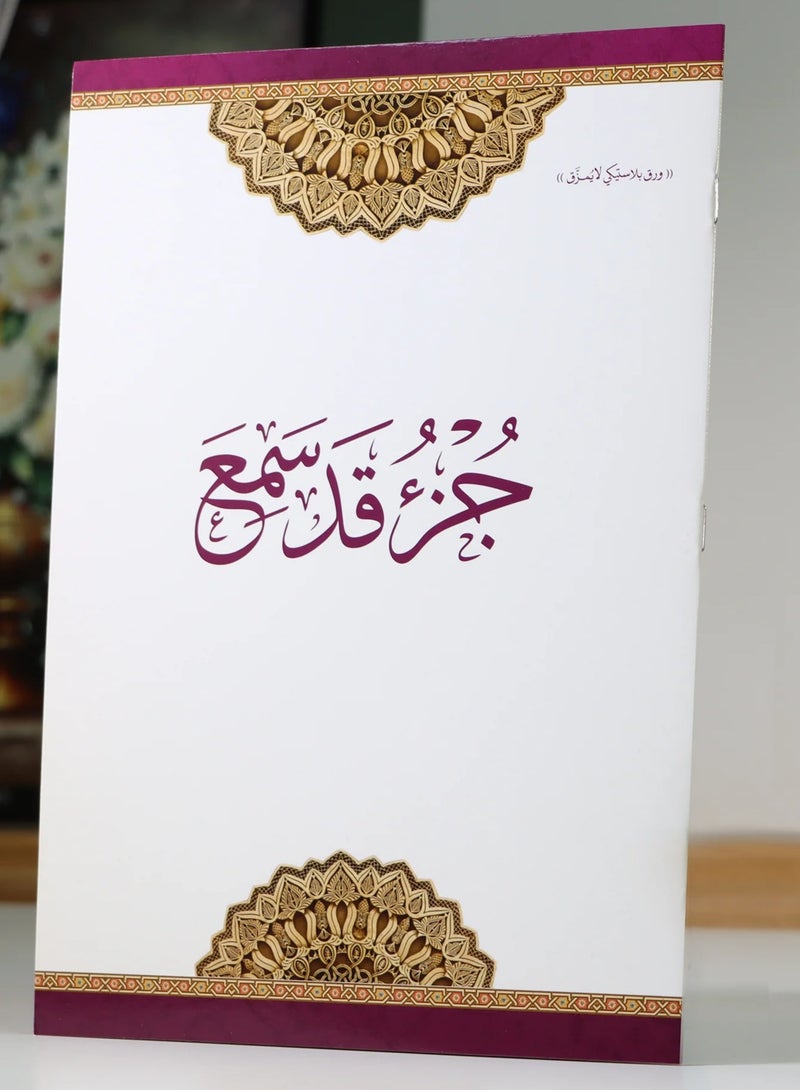 (( ورق بلاستيكي لا يُمزَّق ))
جُزءُ قَدْ سَمِعَ